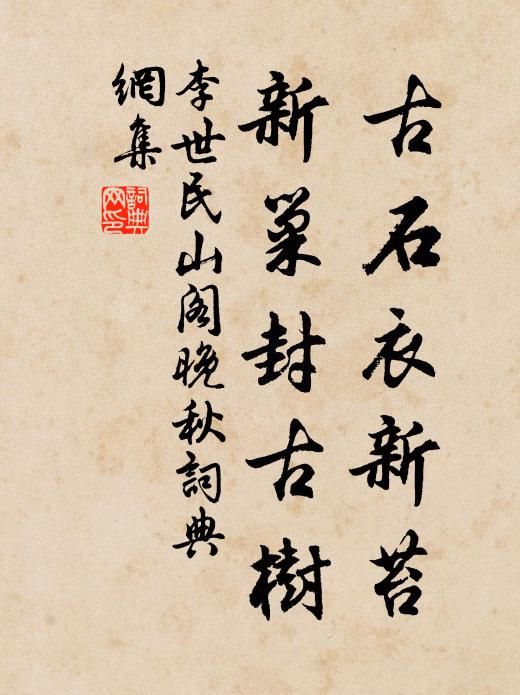 古石衣新苔
新巢封古樹
李世民山閣晚秋詞典
網集
詞典
网印